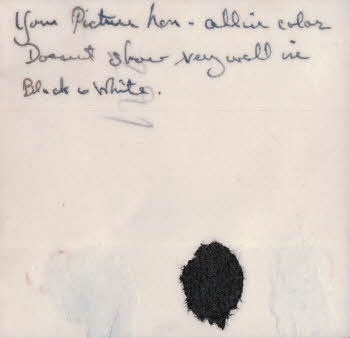 Your Picture hon - all in color
Doesn't show very well in
Black & White.